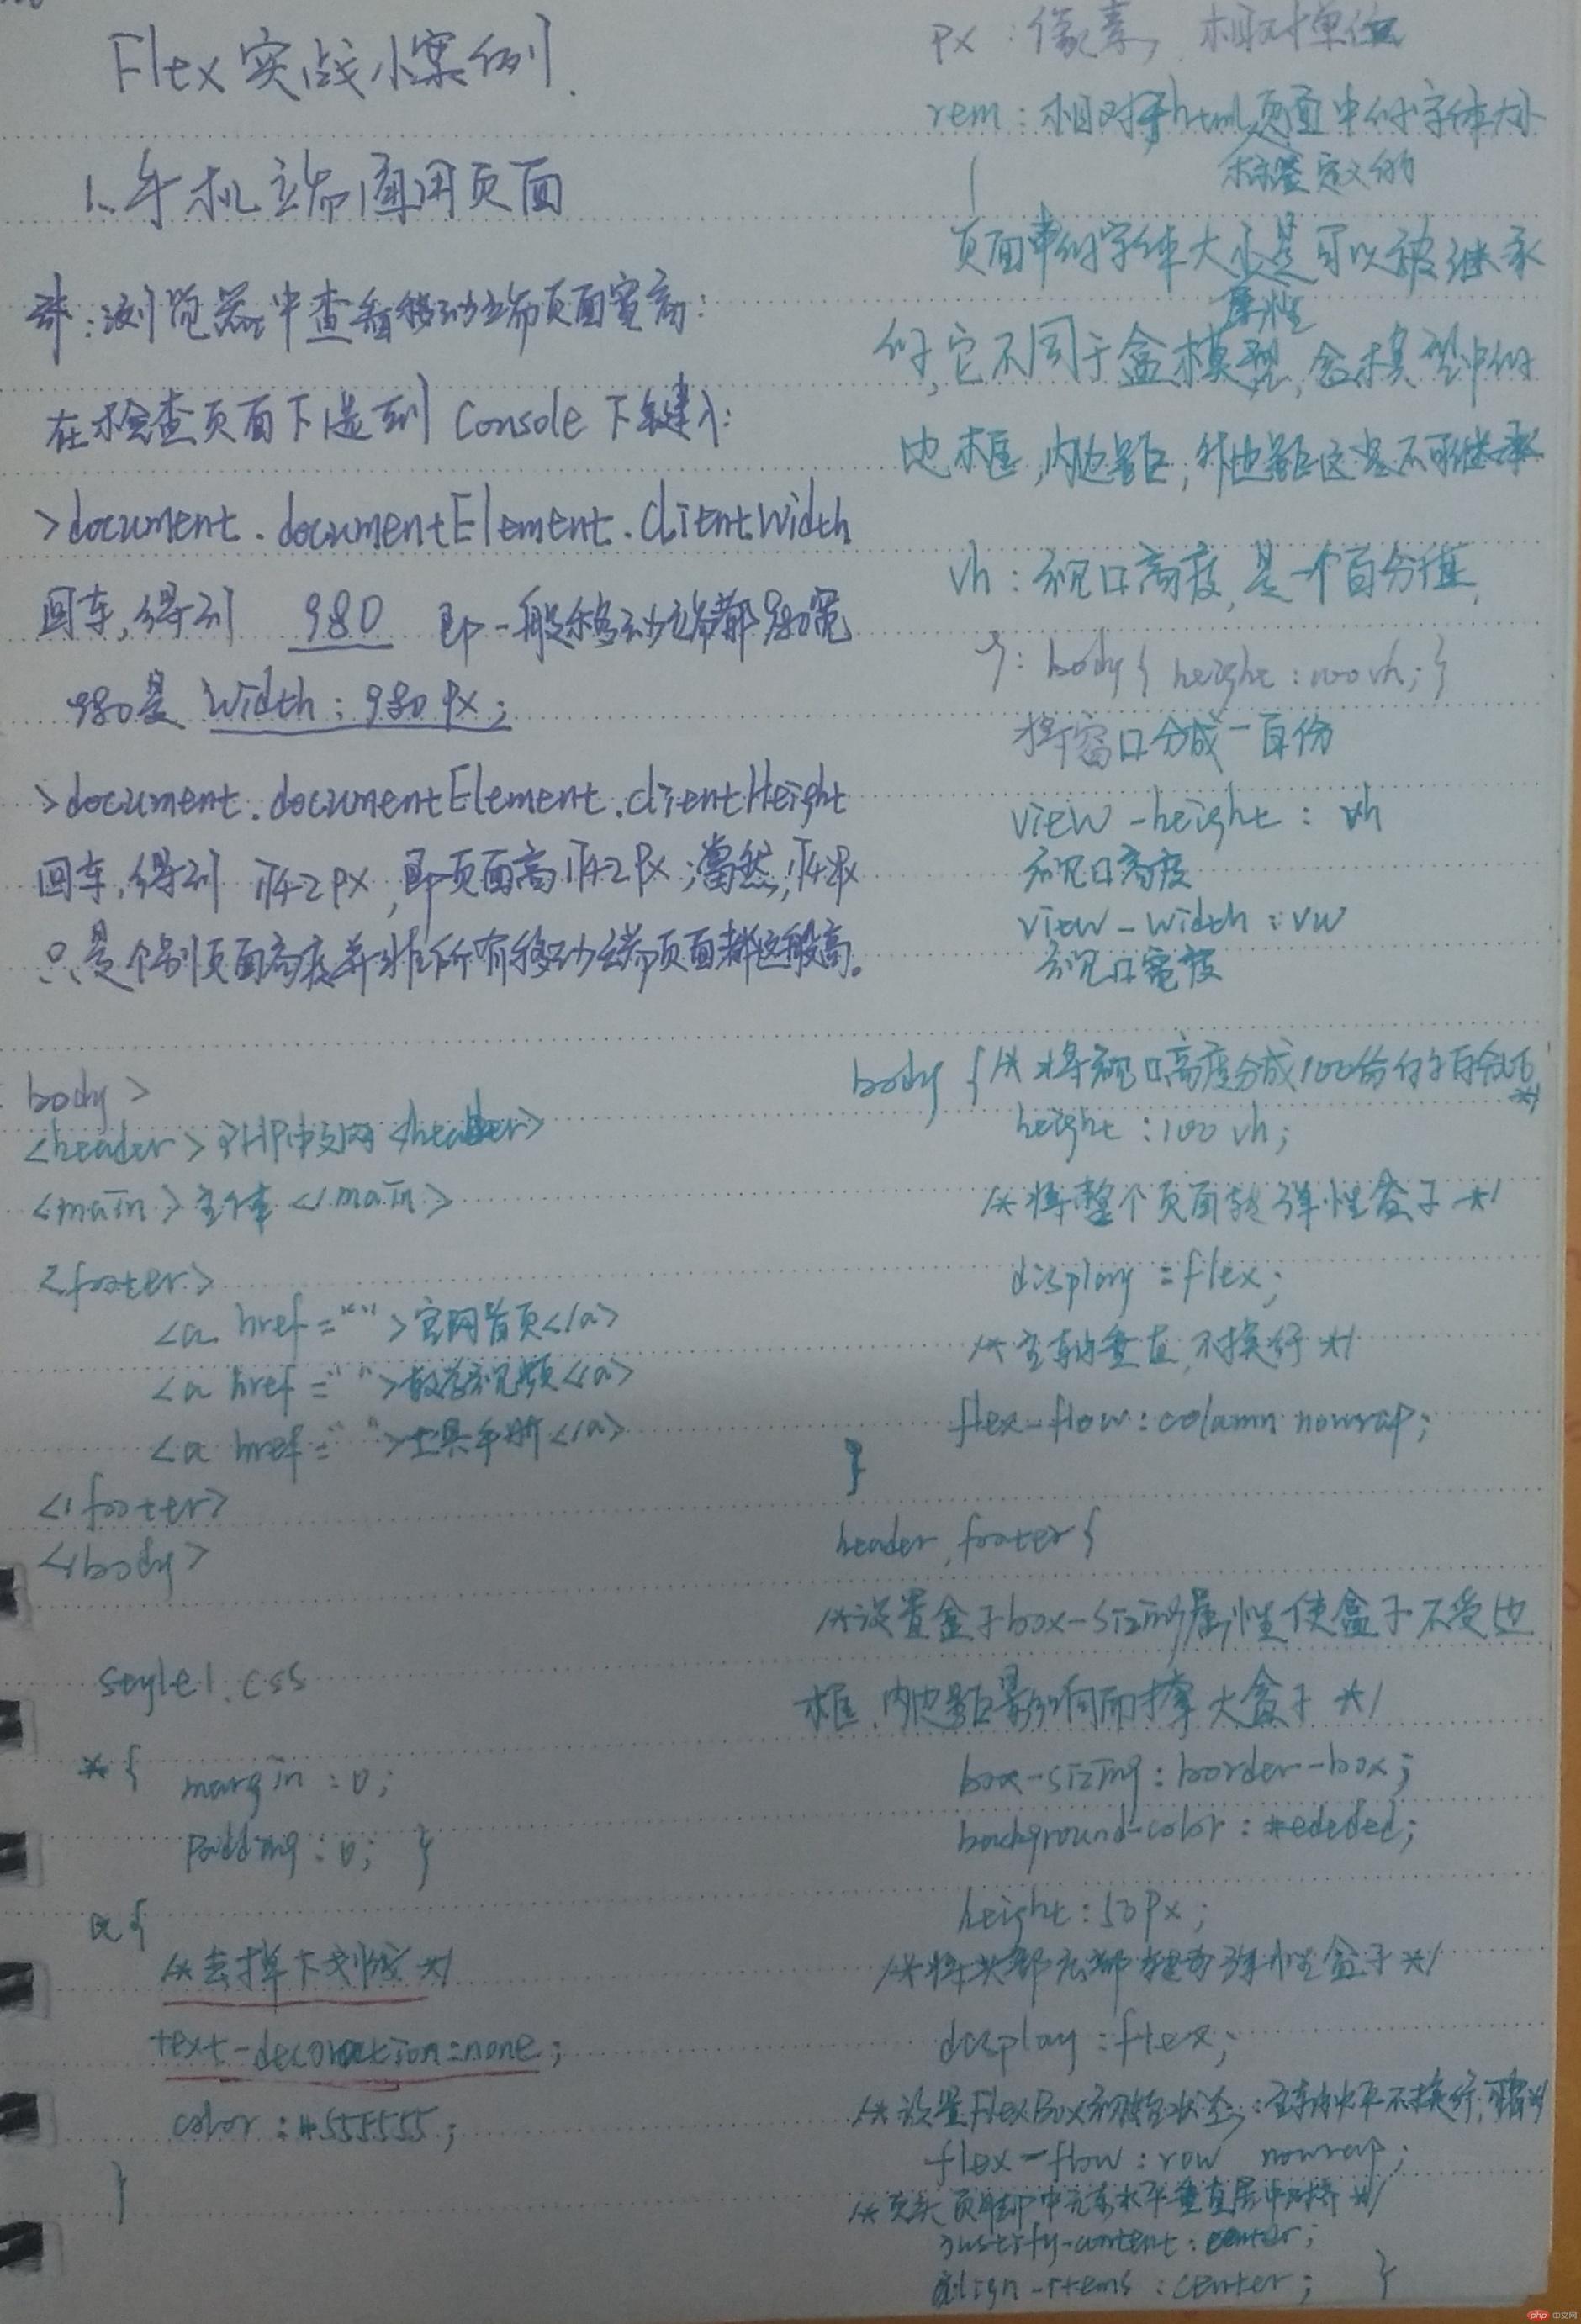 Flex实战小案例.
1、手机端通用页面
补:浏览器中查看移动端页面宽高:
在检查页面下,选到 Console 下键入:
>document.documentElement.clientWidth
回车,得到 980 即一般移动端都980宽
980是 width:980px;
>document.documentElement.clientHeight
回车,得到 1742px,即页面高1742px;当然,1742px
只是个别页面高度并非所有移动端页面都这般高。
body>
<header>PHP中文网<header>
<main>主体</main>
<footer>
<a href="">官网首页</a>
<a href="">教学视频</a>
<a href="">工具手册</a>
</footer>
</body>
style1.css
*{ margin:0;
padding:0; }
a{
/*去掉下划线*/
text-decoration:none;
color:#555555;
}
px:像素,相对单位
rem:相对于html页面中的字体大小
标签定义的
页面中的字体大小是可以被继承
属性
的,它不同于盒模型,盒模型中的
边框,内边距,外边距这些不可继承
vh:视口高度,是一个百分值,
body{ height:100vh;}
将窗口分成一百份
view-height:vh
视口高度
view-width:vw
视口宽度
body {/*将视口高度分成100份的百分比*/
height:100vh;
/*将整个页面转弹性盒子*/
display:flex;
/*主轴垂直,不换行*/
flex-flow:column nowrap;
}
header,footer{
/*设置盒子box-sizing属性使盒子不受边
框、内边距影响而撑大盒子*/
box-sizing:border-box;
background-color:#ededed;
height:50px;
/*将头部底部转为弹性盒子*/
display:flex;
/*设置FlexBox初始状态:主轴水平不换行,可省略*/
flex-flow:row nowrap;
/*页头页脚中元素水平垂直居中对齐*/
justify-content:center;
align-items:center; }
php 中文网